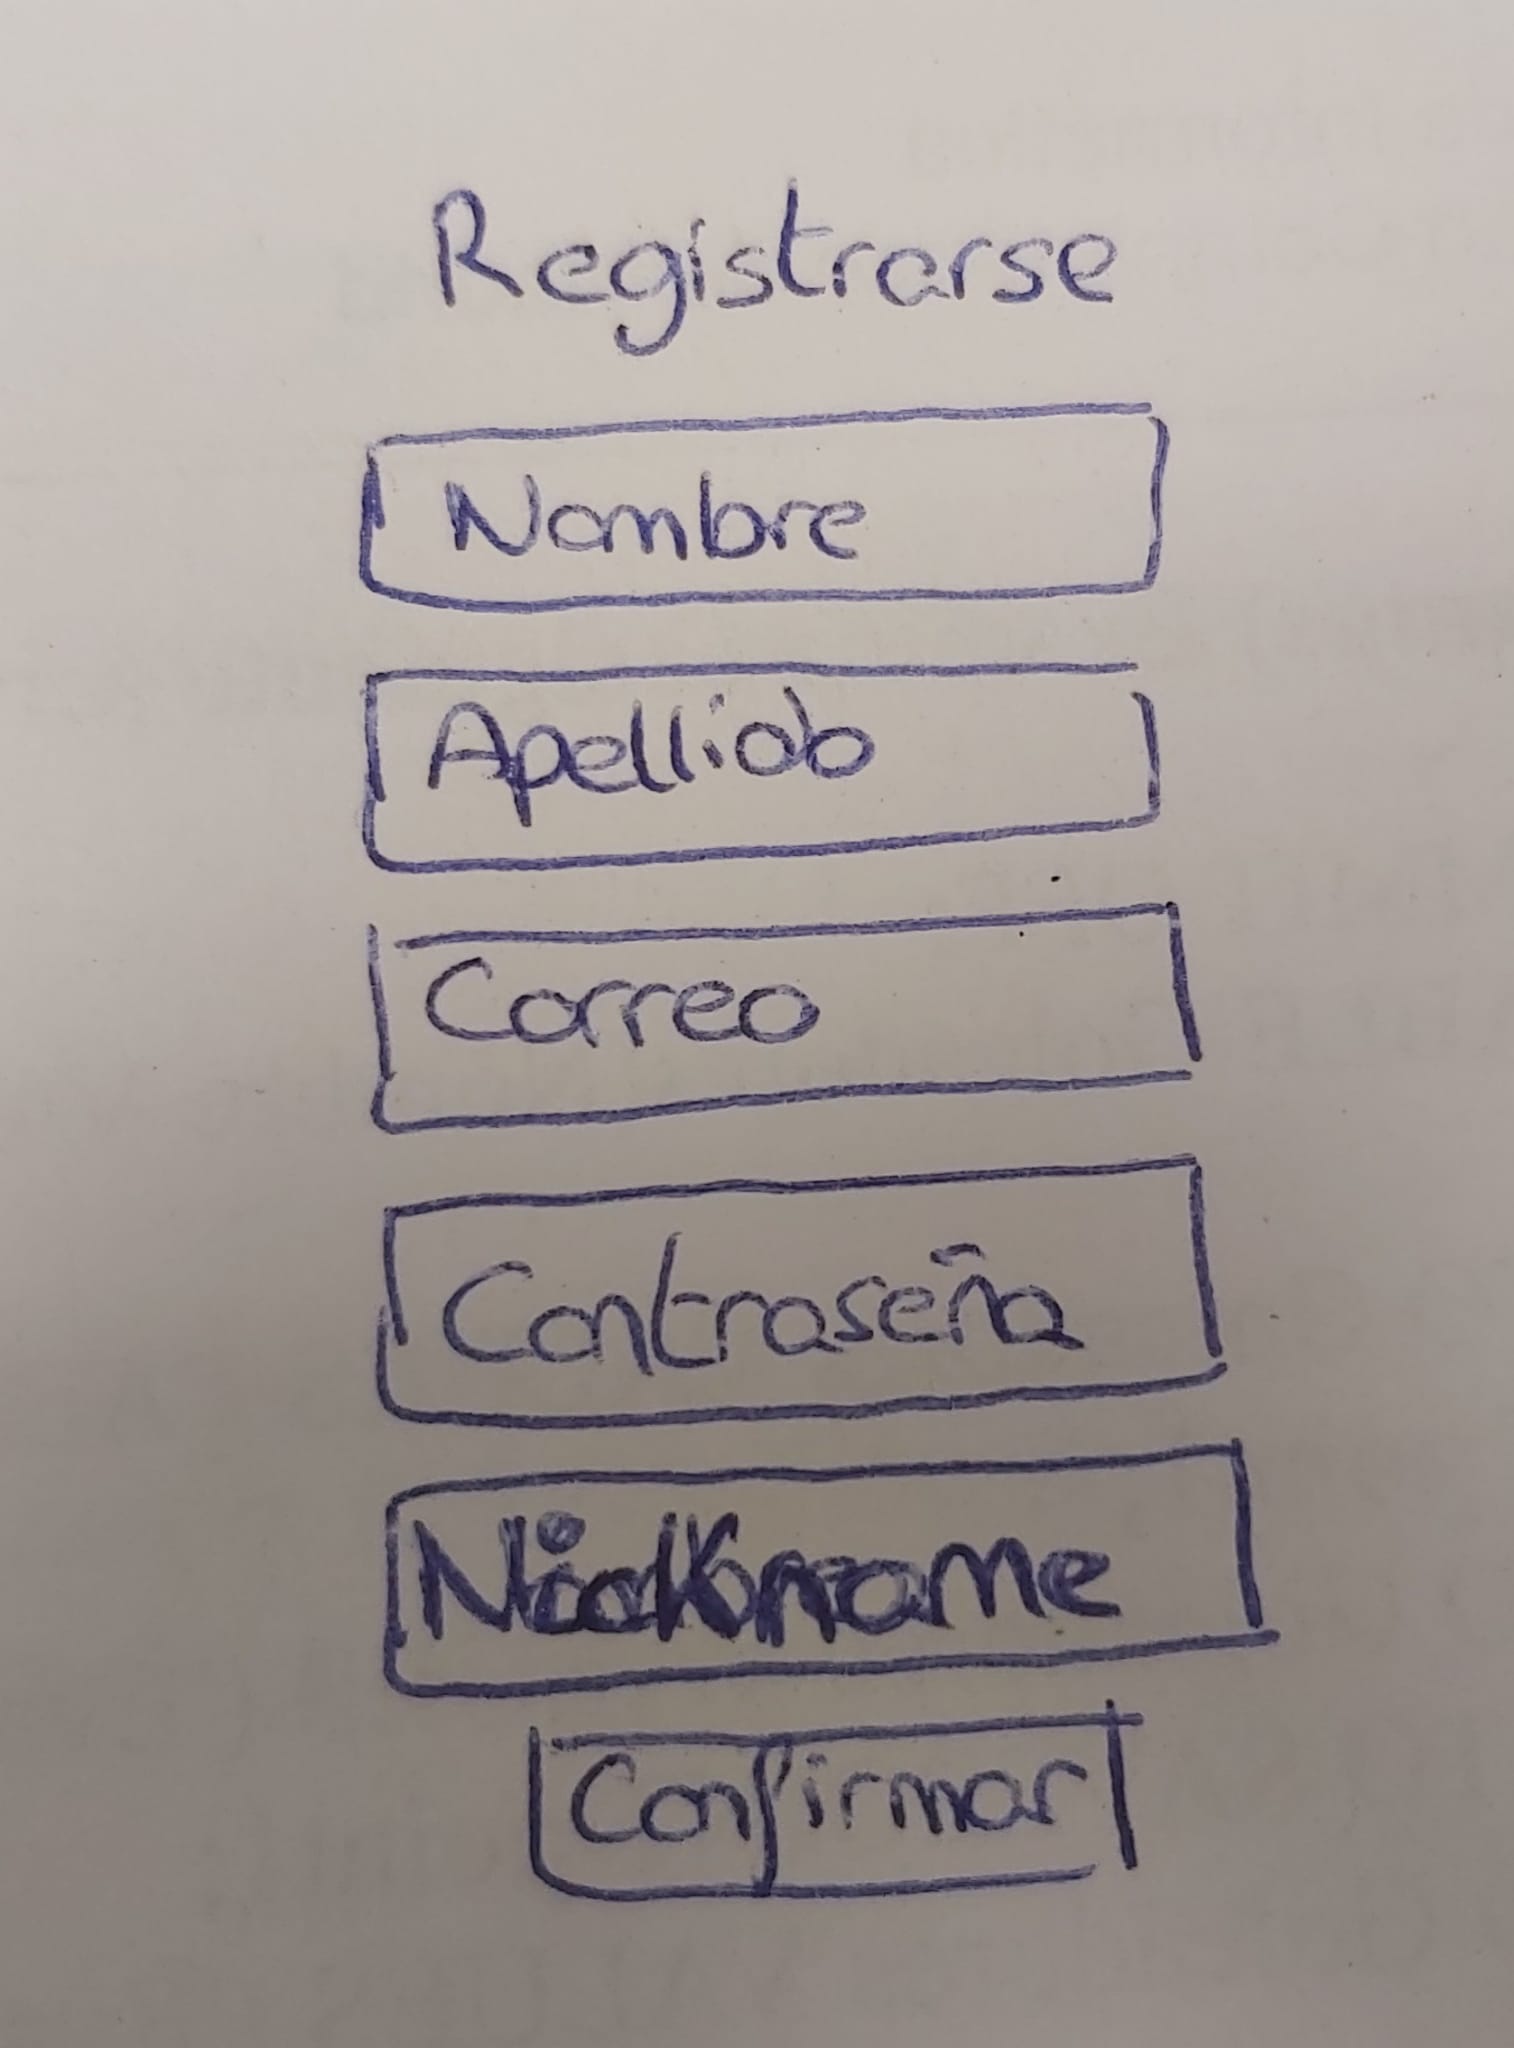 Registrarse
Nombre
Apellido
Correo
Contraseña
Nickname
Confirmar